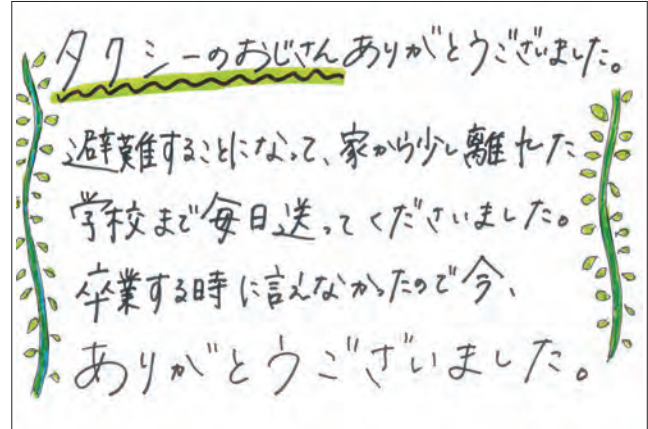 タクシーのおじさんありがとうございました。
避難することになって、家から少し離れた
学校まで毎日送ってくださいました。
卒業する時に言えなかったので今、
ありがとうございました。